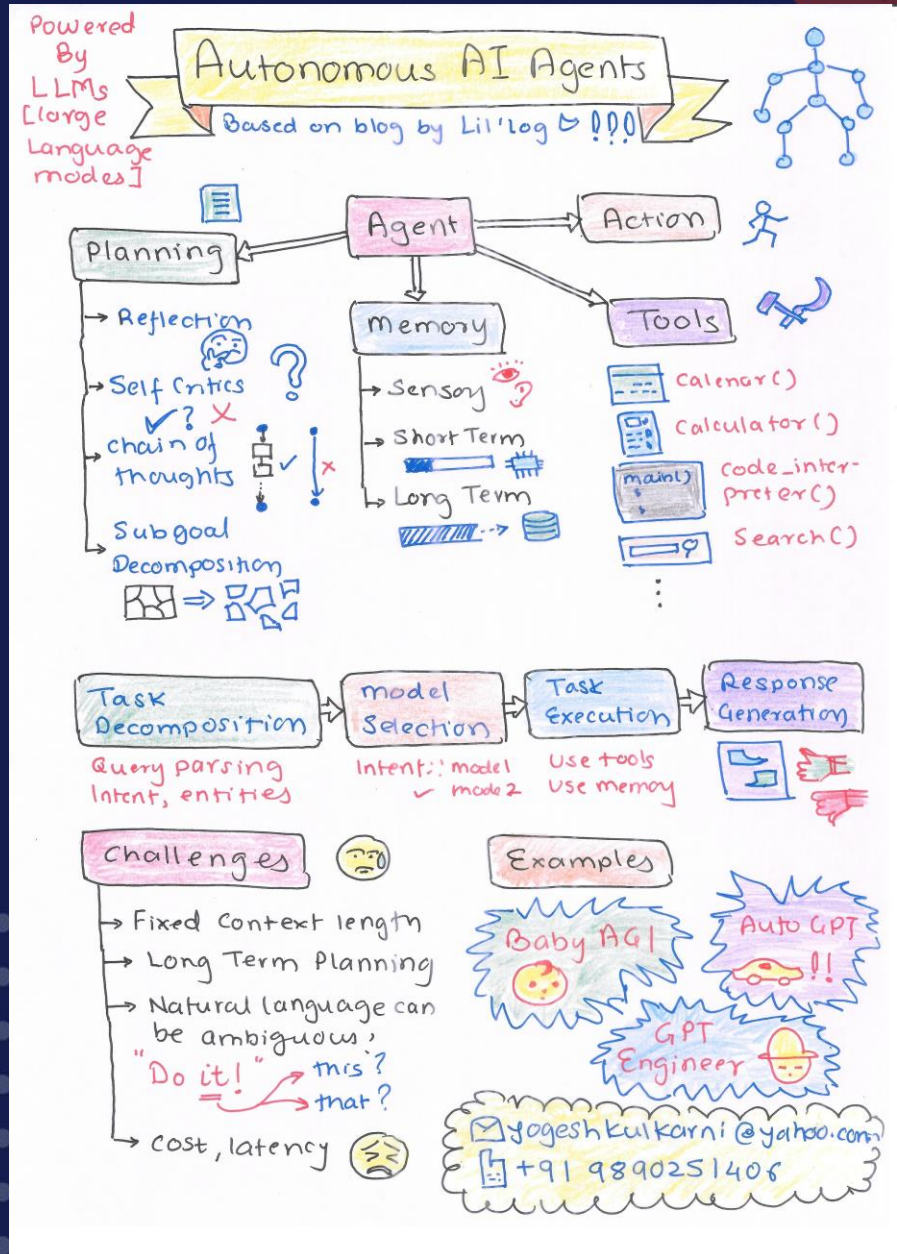 Powered
By
LLMs
[large
Language
modes]
Autonomous AI Agents
Based on blog by Lil'log !!!
Agent
Action
Planning
→ Reflection
→ Self Critics
✓ ? X
→ chain of
thoughts
→ Subgoal
Decomposition
Memory
→ Sensory
→ Short Term
→ Long Term
Tools
Calenar()
Calculator()
main()
code_inter-
preter()
Search()
Task
Decomposition
Query parsing
Intent, entities
model
Selection
Intent:: model1
✓ mode2
Task
Execution
Use tools
Use memory
Response
Generation
Challenges
→ Fixed Context length
→ Long Term Planning
→ Natural language can
be ambiguous,
"Do it!" this?
that?
→ cost, latency
Examples
Baby AGI
Auto GPT
!!
GPT
Engineer
yogeshkulkarni@yahoo.com
+91 9890251406